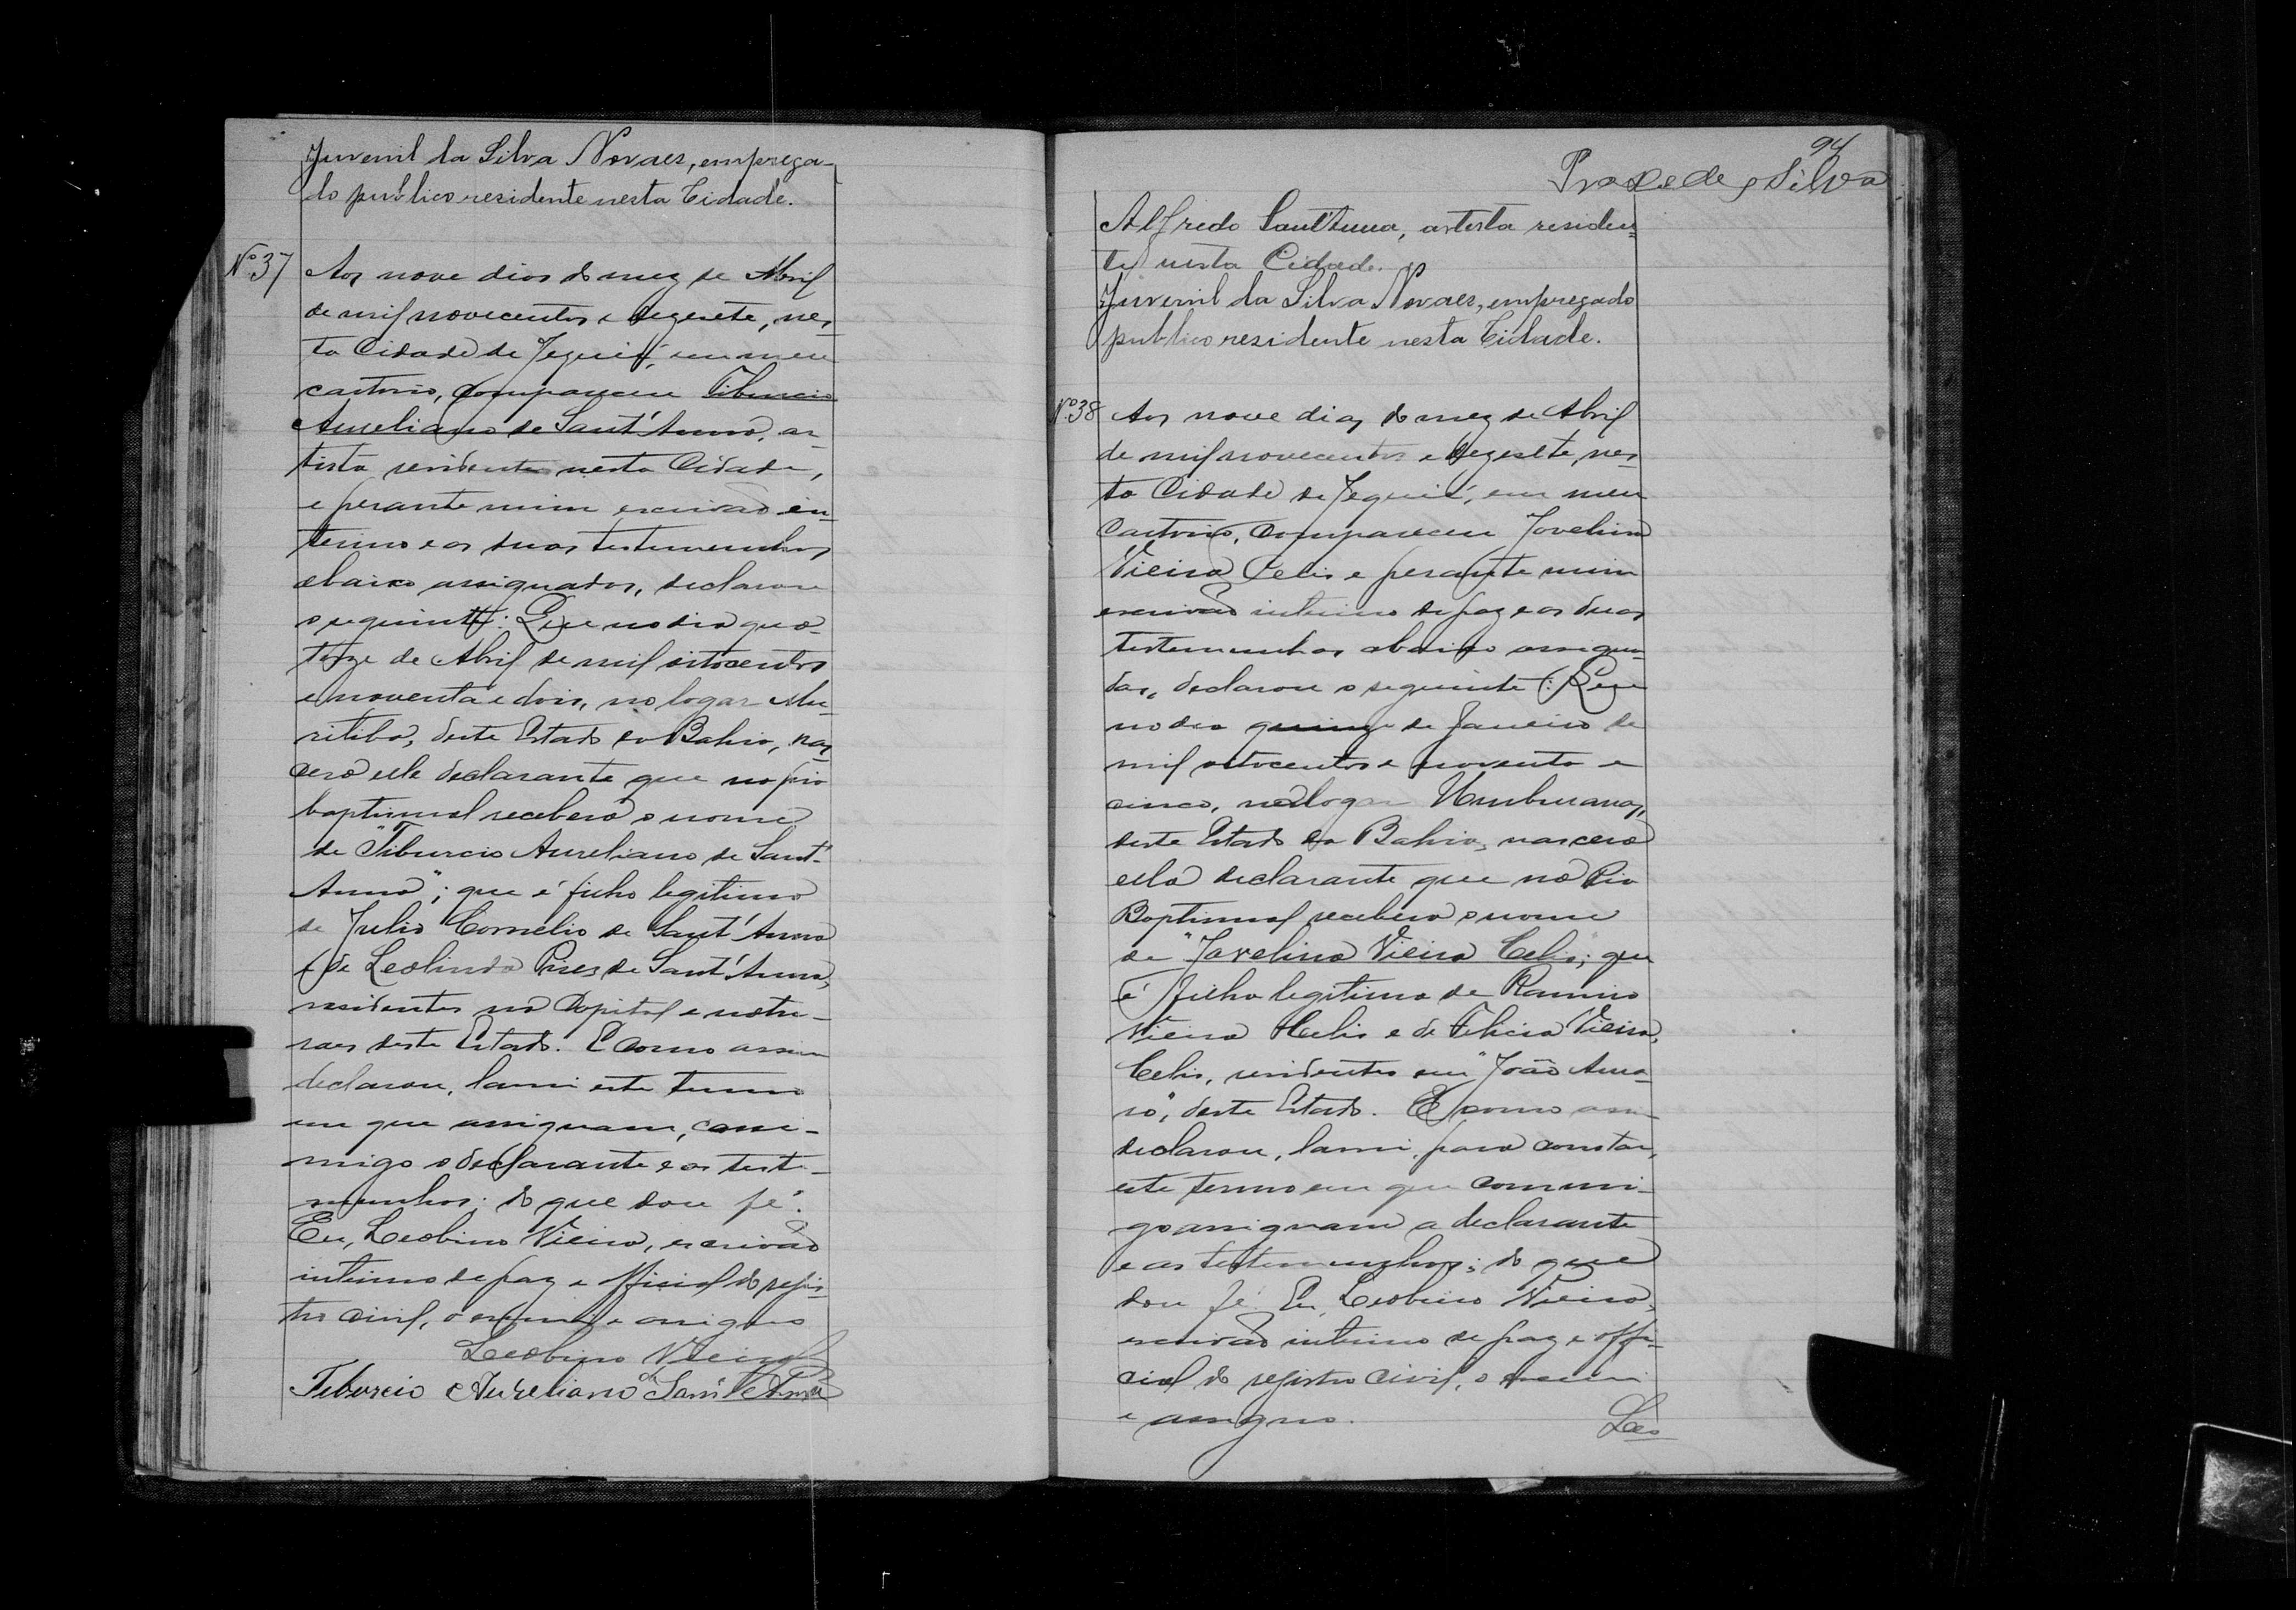 Juvenil da Silva Novaes, emprega-
do publico residente nesta Cidade.
Nº 37
Aos nove dias do mez de Abril
de mil novecentos e dezesete, nes-
ta Cidade de Jequié, em meu
cartorio, compareceu Tiburcio
Aureliano de Sant'Anna, ar-
tista residente nesta Cidade,
e perante mim escrivão in-
terino e as duas testemunhas
abaixo assignadas, declarou
o seguinte: Que no dia qua-
torze de Abril de mil oitocentos
e noventa e dois, no logar Mu-
ritiba, deste Estado da Bahia, nas-
cera elle declarante que na pia
baptismal recebera o nome
de "Tiburcio Aureliano de Sant'
Anna"; que é filho legitimo
de Julio Cornelio de Sant'Anna
e de Leolinda Pires de Sant'Anna,
residentes na Capital e natu-
raes deste Estado. E como assim
declarou, lavrei este termo
em que assignam, com-
migo o declarante e as teste-
munhas; do que dou fé.
Eu, Leobino Vieira, escrivão
interino de paz e official do regis-
tro civil, o escrevi e assigno
Leobino Vieira
Tiburcio Aureliano de Sant'Anna
94
Praxedes Silva
Alfredo Sant'Anna, artista residen-
te nesta Cidade.
Juvenil da Silva Novaes, empregado
publico residente nesta Cidade.
Nº 38
Aos nove dias do mez de Abril
de mil novecentos e dezesete, nes-
ta Cidade de Jequié, em meu
Cartorio, compareceu Jovelina
Vieira Celis e perante mim
escrivão interino de paz e as duas
testemunhas abaixo assigna-
das, declarou o seguinte: Que
no dia quinze de Janeiro de
mil oitocentos e noventa e
cinco, no logar Umburanas,
deste Estado da Bahia, nascera
ella declarante que na Pia
Baptismal recebera o nome
de "Jovelina Vieira Celis"; que
é filha legitima de Ramiro
Vieira Celis e de Felicia Vieira
Celis, residentes em "João Ama-
ro", deste Estado. E como assim
declarou, lavrei, para constar,
este termo em que commi-
go assignam a declarante
e as testemunhas; do que
dou fé. Eu, Leobino Vieira,
escrivão interino de paz e offi-
cial do registro civil, o escrevi
e assigno.
Leo